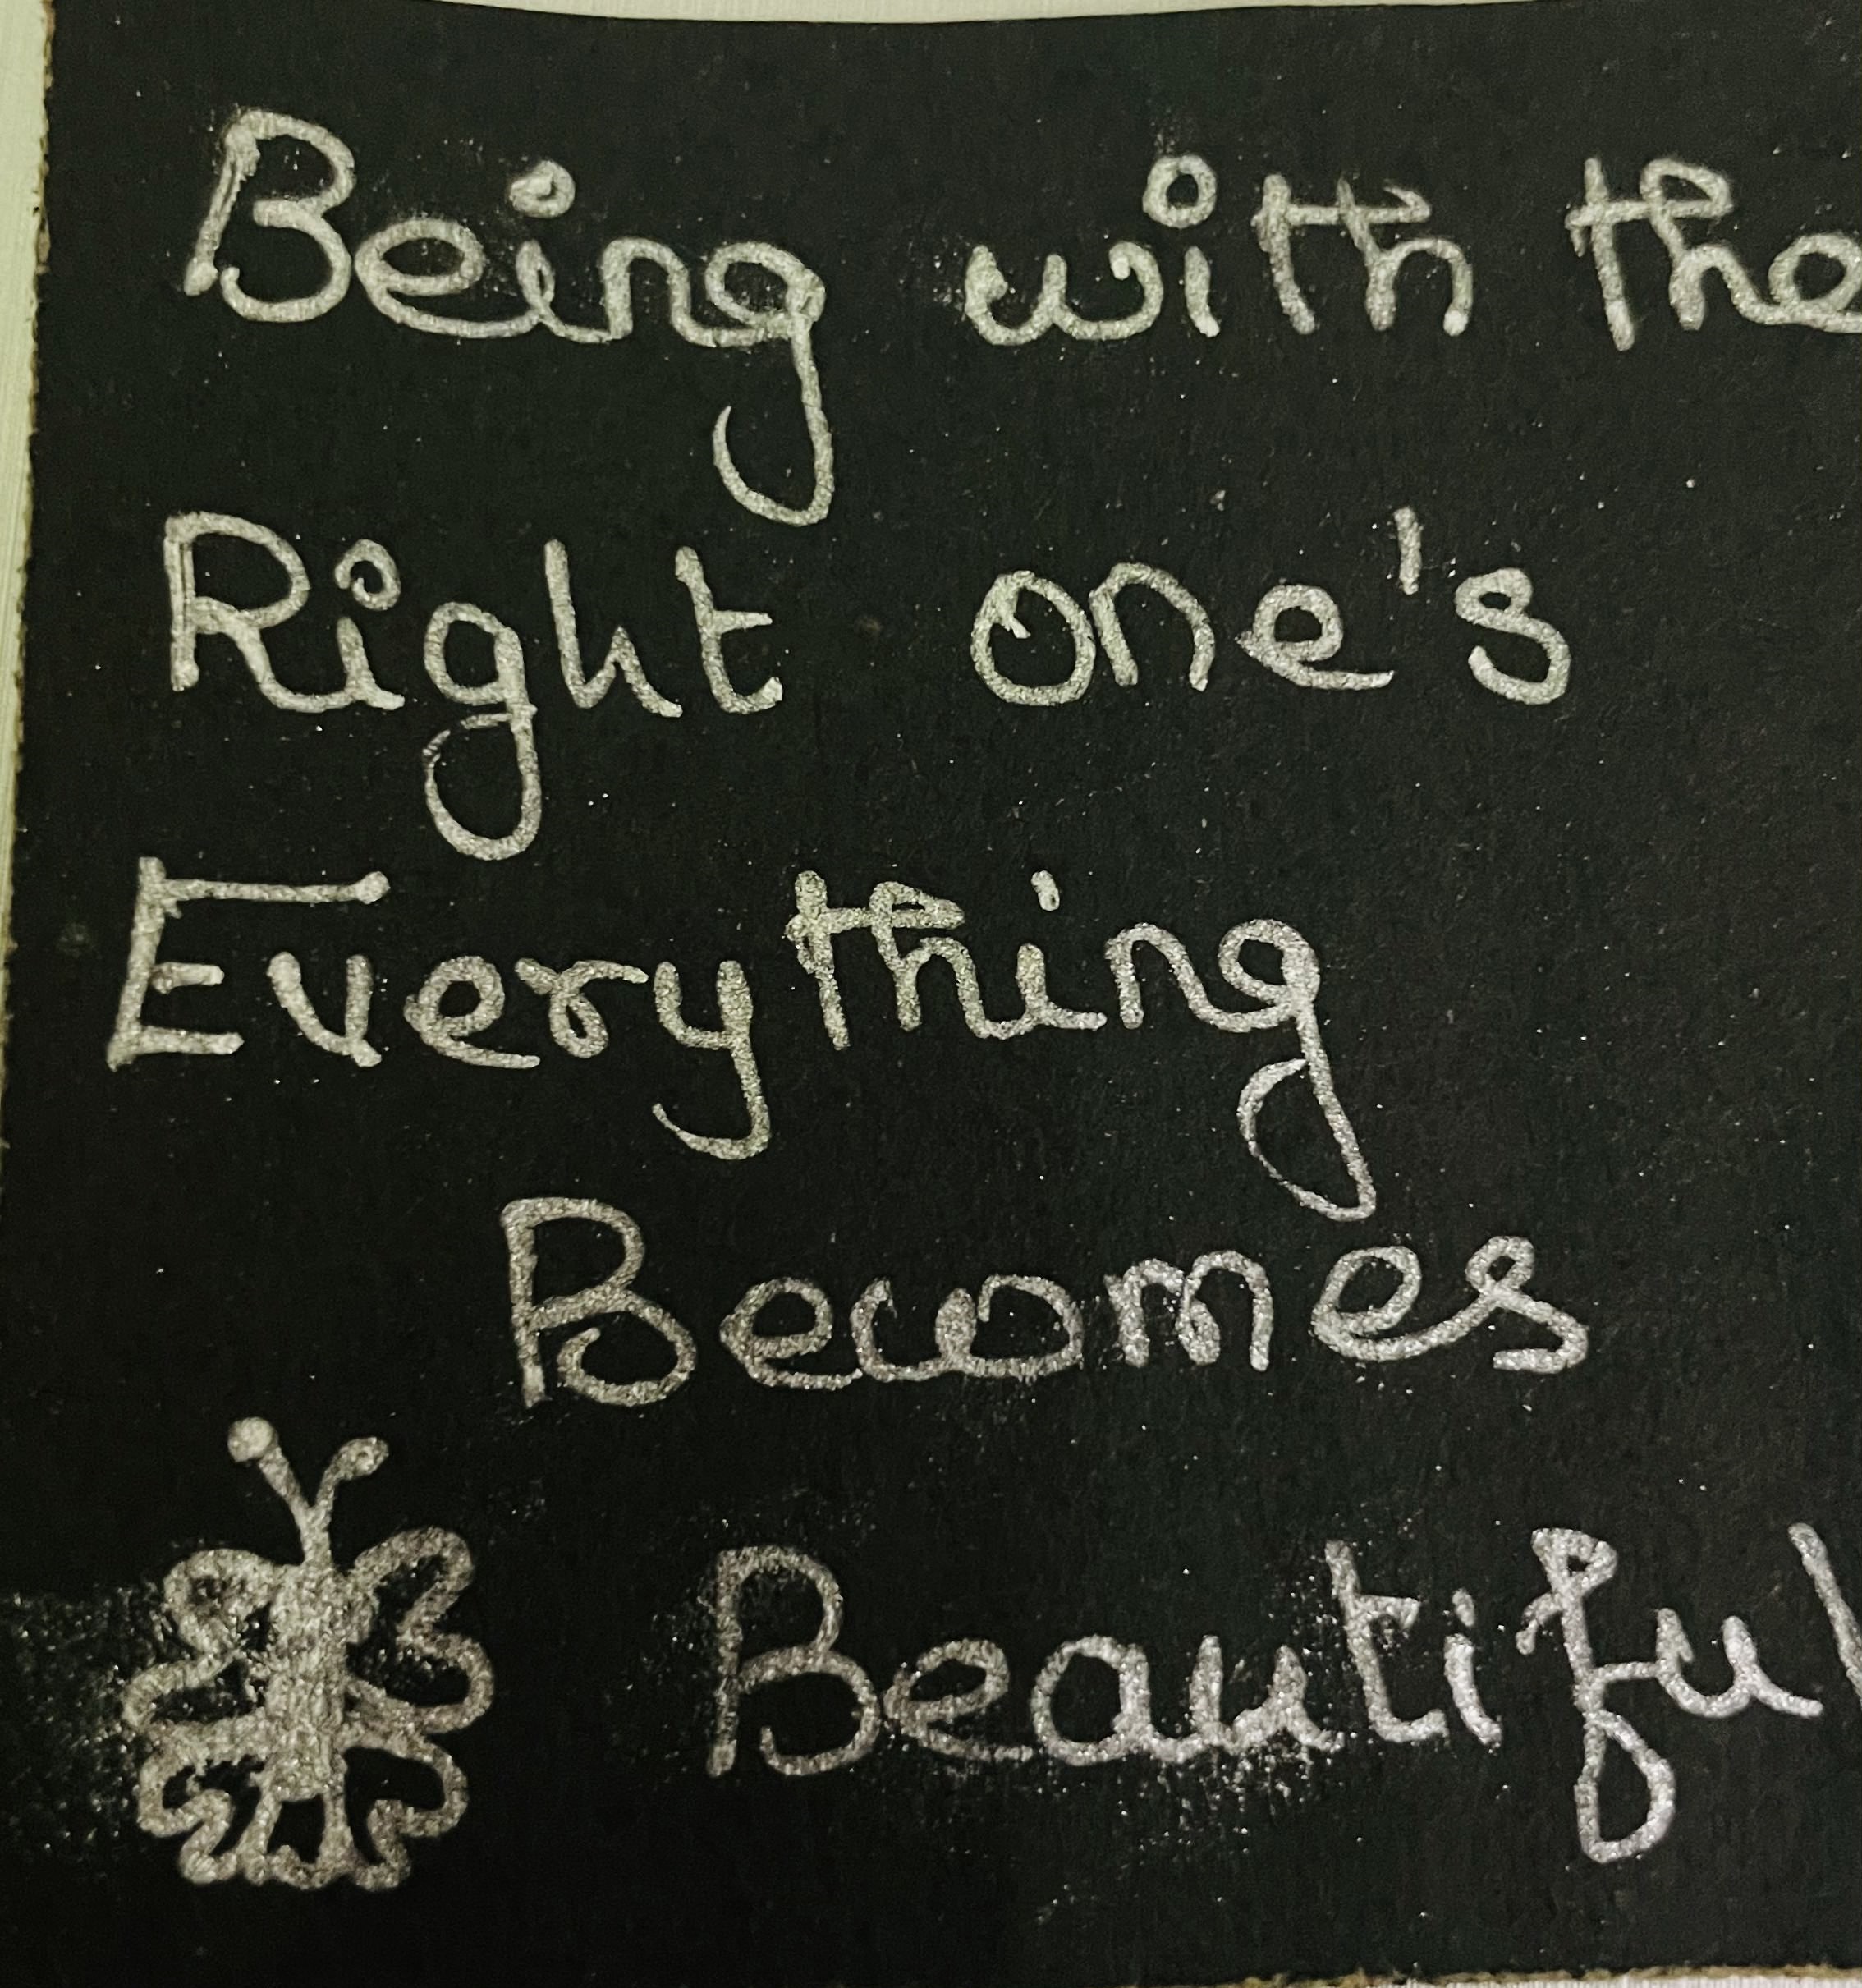 Being with the
Right one's
Everything
Becomes
Beautiful